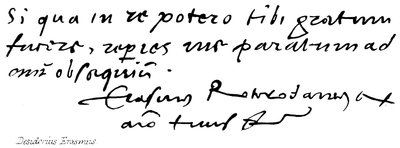 Si qua in re potero tibi gratum
facere, reperies me paratum ad
omē obsequiū.
Erasmus Roterodamus
tuus
Desiderius Erasmus